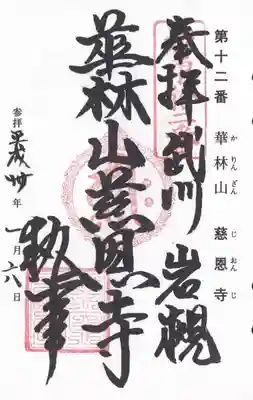 第十二番 華林山 慈恩寺
かりんざん じおんじ
奉拝 武州 岩槻
華林山慈恩寺
執事
参拝 平成卅年一月六日